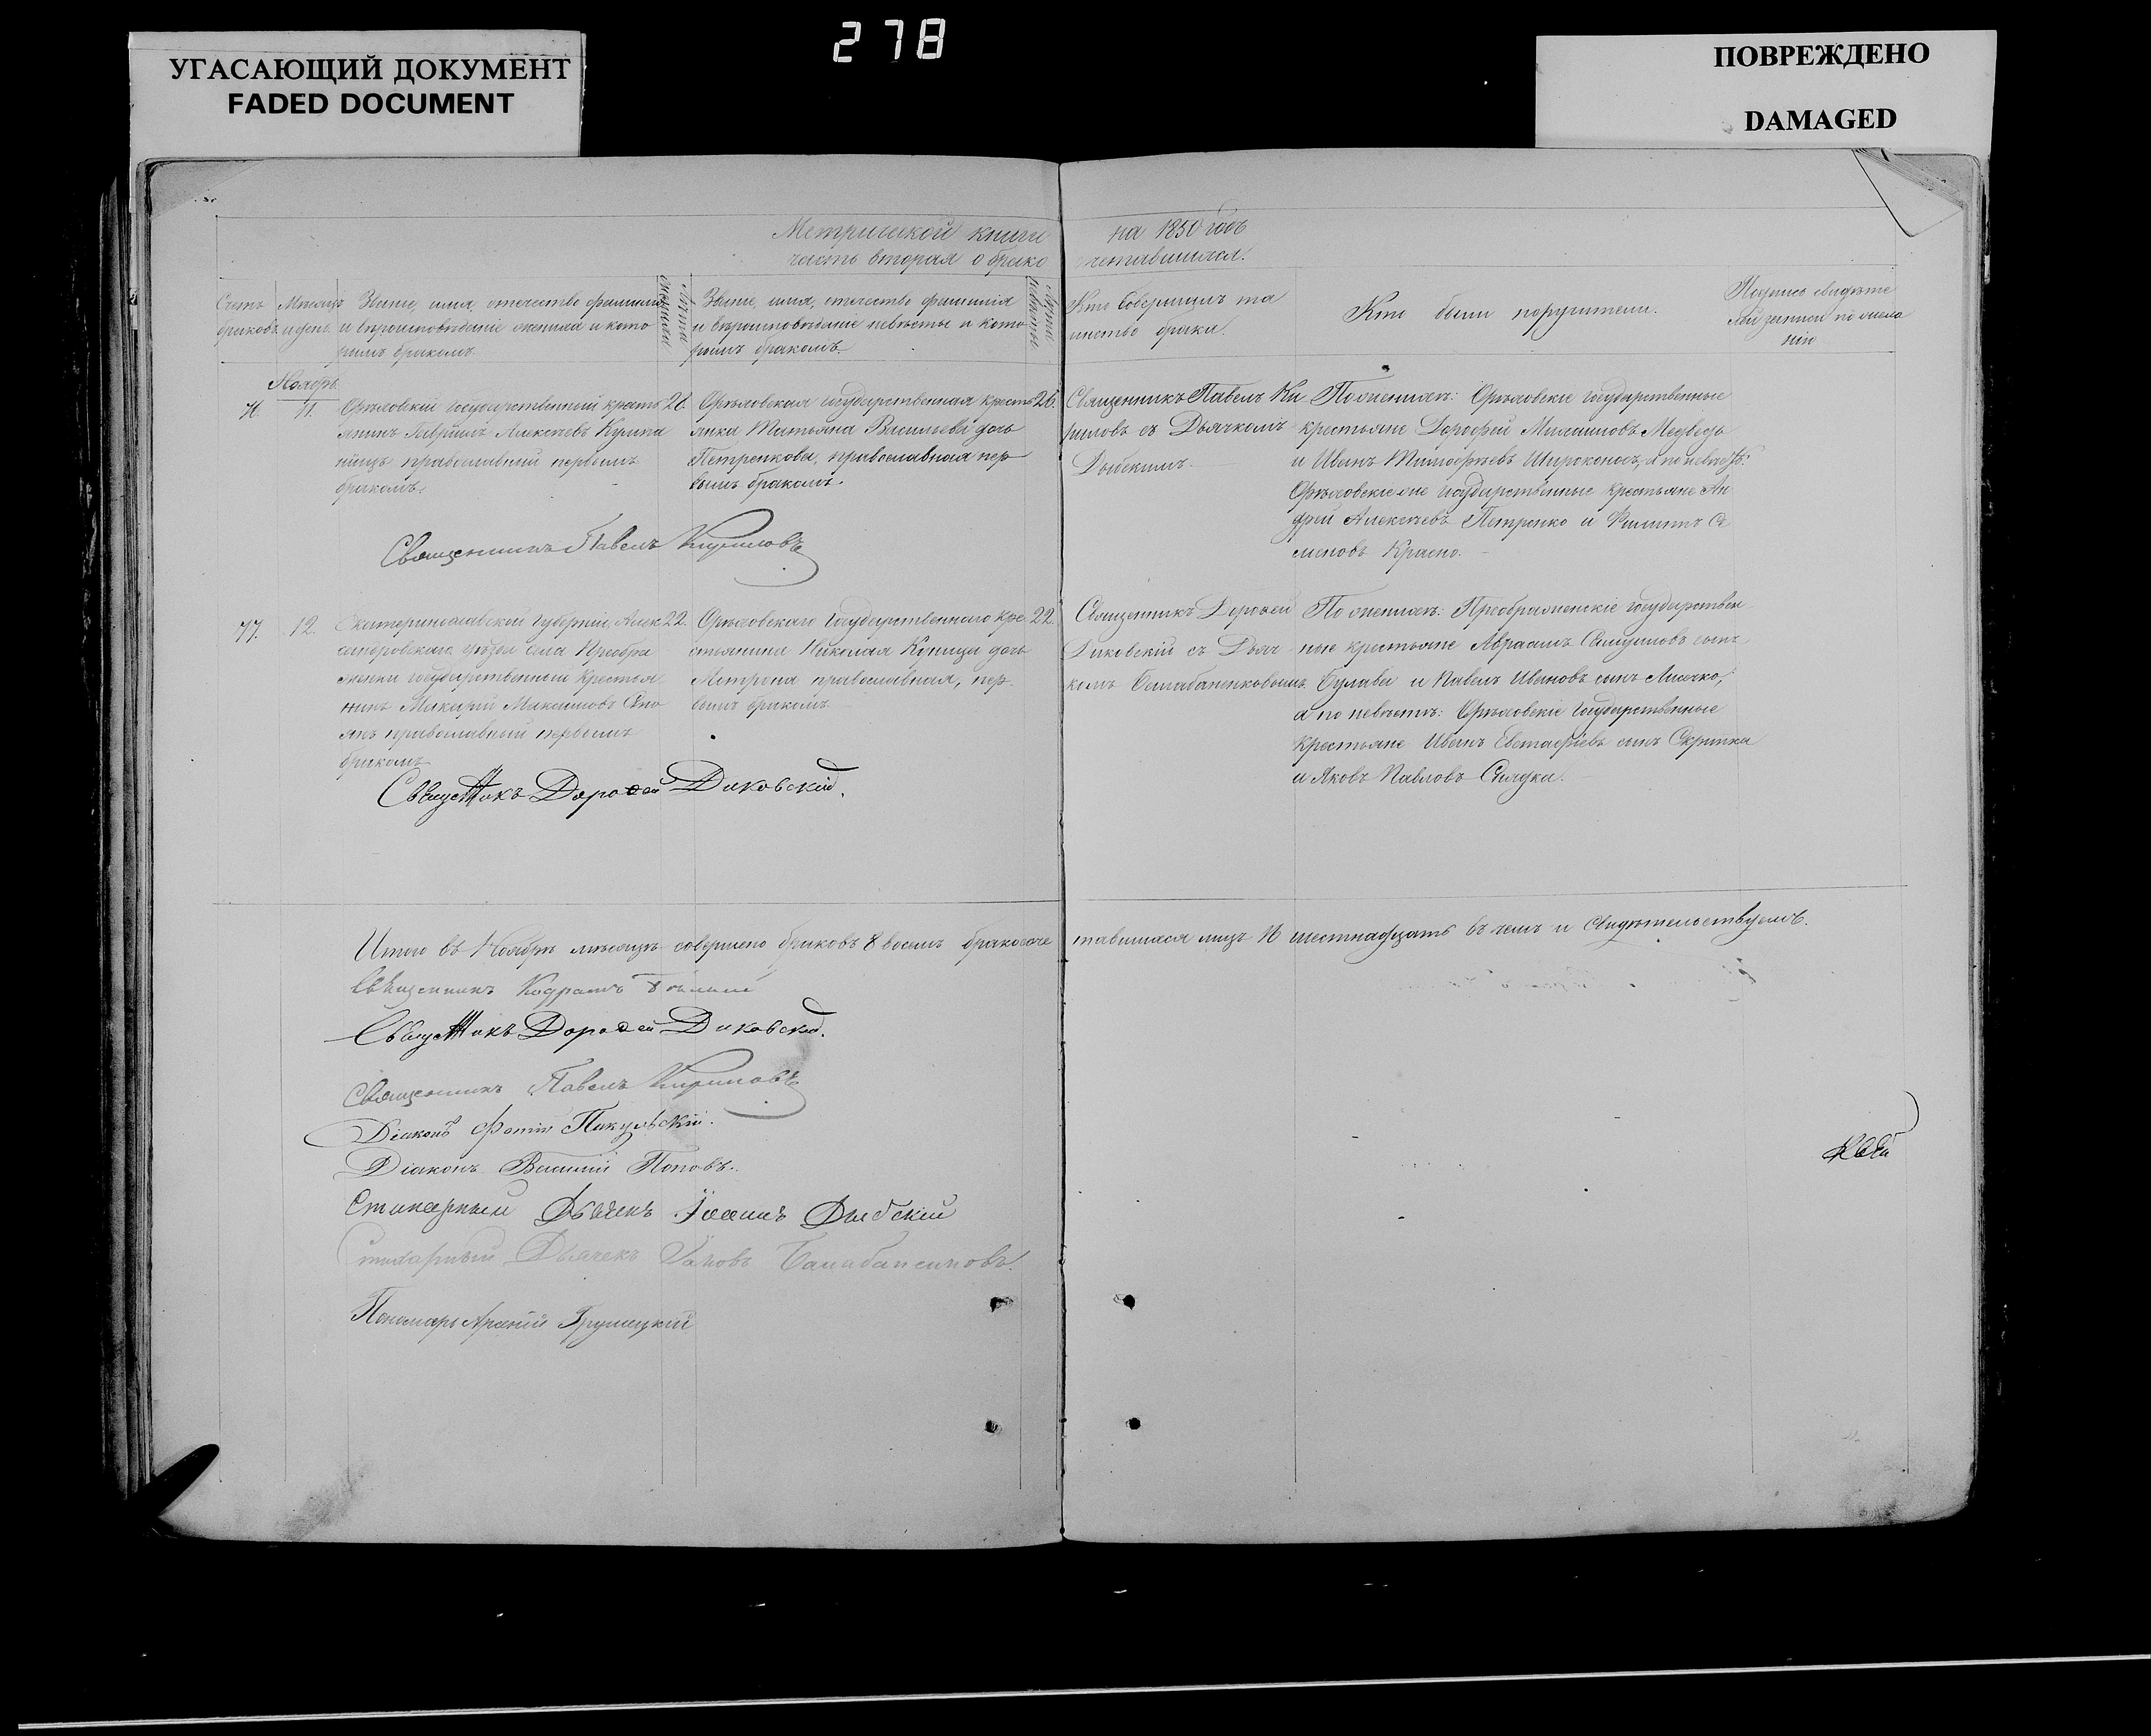 278
УГАСАЮЩИЙ ДОКУМЕНТ
FADED DOCUMENT
ПОВРЕЖДЕНО
DAMAGED
Метрической книги на 1850 годъ
часть вторая о брако четавшихся.
Счетъ браковъ
Мѣсяцъ и день
Званіе, имя, отечество фамилія
и вѣроисповѣданіе жениха и кото
рымъ бракомъ.
Лѣта жениха
Званіе, имя, отечество фамилія
и вѣроисповѣданіе невѣсты и кото
рымъ бракомъ.
Лѣта невѣсты
Кто совершилъ та
инство брака.
Кто были поручители.
Подпись свидѣте
лей записи по жела
нію
Ноябрь
11.
Орѣховскій государственный кресть
янинъ Гавріилъ Алексѣевъ
православный первымъ
бракомъ.
26.
Орѣховская государственная кресть
янка Татьяна Васильева дочь
Петренкова, православная пер
вымъ бракомъ.
26.
Священникъ Павелъ Ки
риловъ съ Дьячкомъ
По женихѣ: Орѣховскіе государственные
крестьяне Дорофей Медведь
и Иванъ Тимофѣевъ Широконосъ, а по невѣстѣ:
Орѣховскіе же государственные крестьяне Ан
дрей Алексѣевъ Петренко и Филиппъ Се
меновъ Красно.
Священникъ Павелъ Кириловъ
77.
12.
Екатеринославской губерніи, Алек
сандровскаго уѣзда села Преобра
женки государственный крестья
нинъ Макарій Максимовъ
православный первымъ
бракомъ
22.
Орѣховскаго государственнаго кре
стьянина Николая Куницы дочь
Матрона православная, пер
вымъ бракомъ
22.
Священникъ Дорофей
Диковскій съ Дьяч
комъ Балабаненковымъ.
По женихѣ: Преображенскіе государствен
ные крестьяне Авраамъ сынъ
Булава и Павелъ Ивановъ сынъ Лисечко,
а по невѣстѣ: Орѣховскіе государственные
крестьяне Иванъ Евстафіевъ сынъ Скрипка
и Яковъ Павловъ
Священникъ Дорофей Диковскій.
Итого въ Ноябрѣ мѣсяцѣ совершено браковъ 8 восемъ бракосоче тавшихся лицъ 16 шестнадцать въ чемъ и свидѣтельствуемъ.
Священникъ Кодратъ
Священникъ Дорофей Диковскій.
Священникъ Павелъ Кириловъ
Діаконъ Фотій
Діаконъ Василій Поповъ.
Стихарный Дьячекъ Іоаннъ
Стихарный Дьячекъ Іаковъ
Пономарь Арсеній Грушецкій